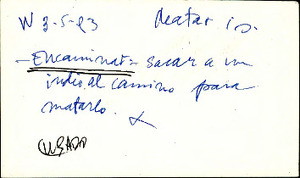 W 3-5-83 Matar i.
- Encaminar = sacar a un
indio al camino para
matarlo. X
USADO